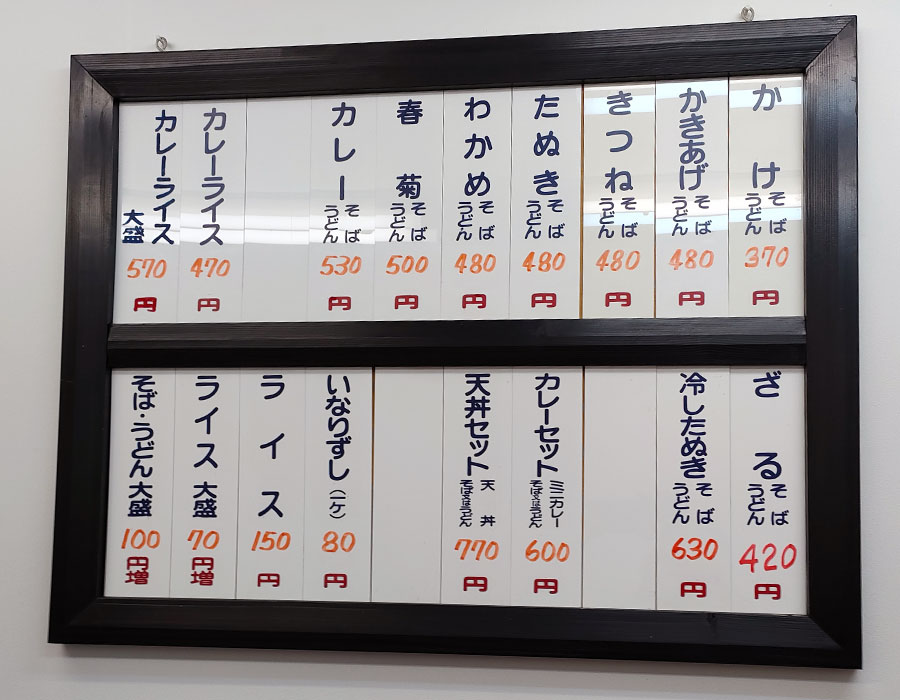 かけ そば うどん 370 円
かきあげ そば うどん 480 円
きつね そば うどん 480 円
たぬき そば うどん 480 円
わかめ そば うどん 480 円
春菊 そば うどん 500 円
カレー そば うどん 530 円
カレーライス 470 円
カレーライス 大盛 570 円
ざる そば うどん 420 円
冷したぬき そば うどん 630 円
カレーセット ミニカレー そば又はうどん 600 円
天丼セット 天丼 そば又はうどん 770 円
いなりずし (一ケ) 80 円
ライス 150 円
ライス 大盛 70 円増
そば・うどん 大盛 100 円増